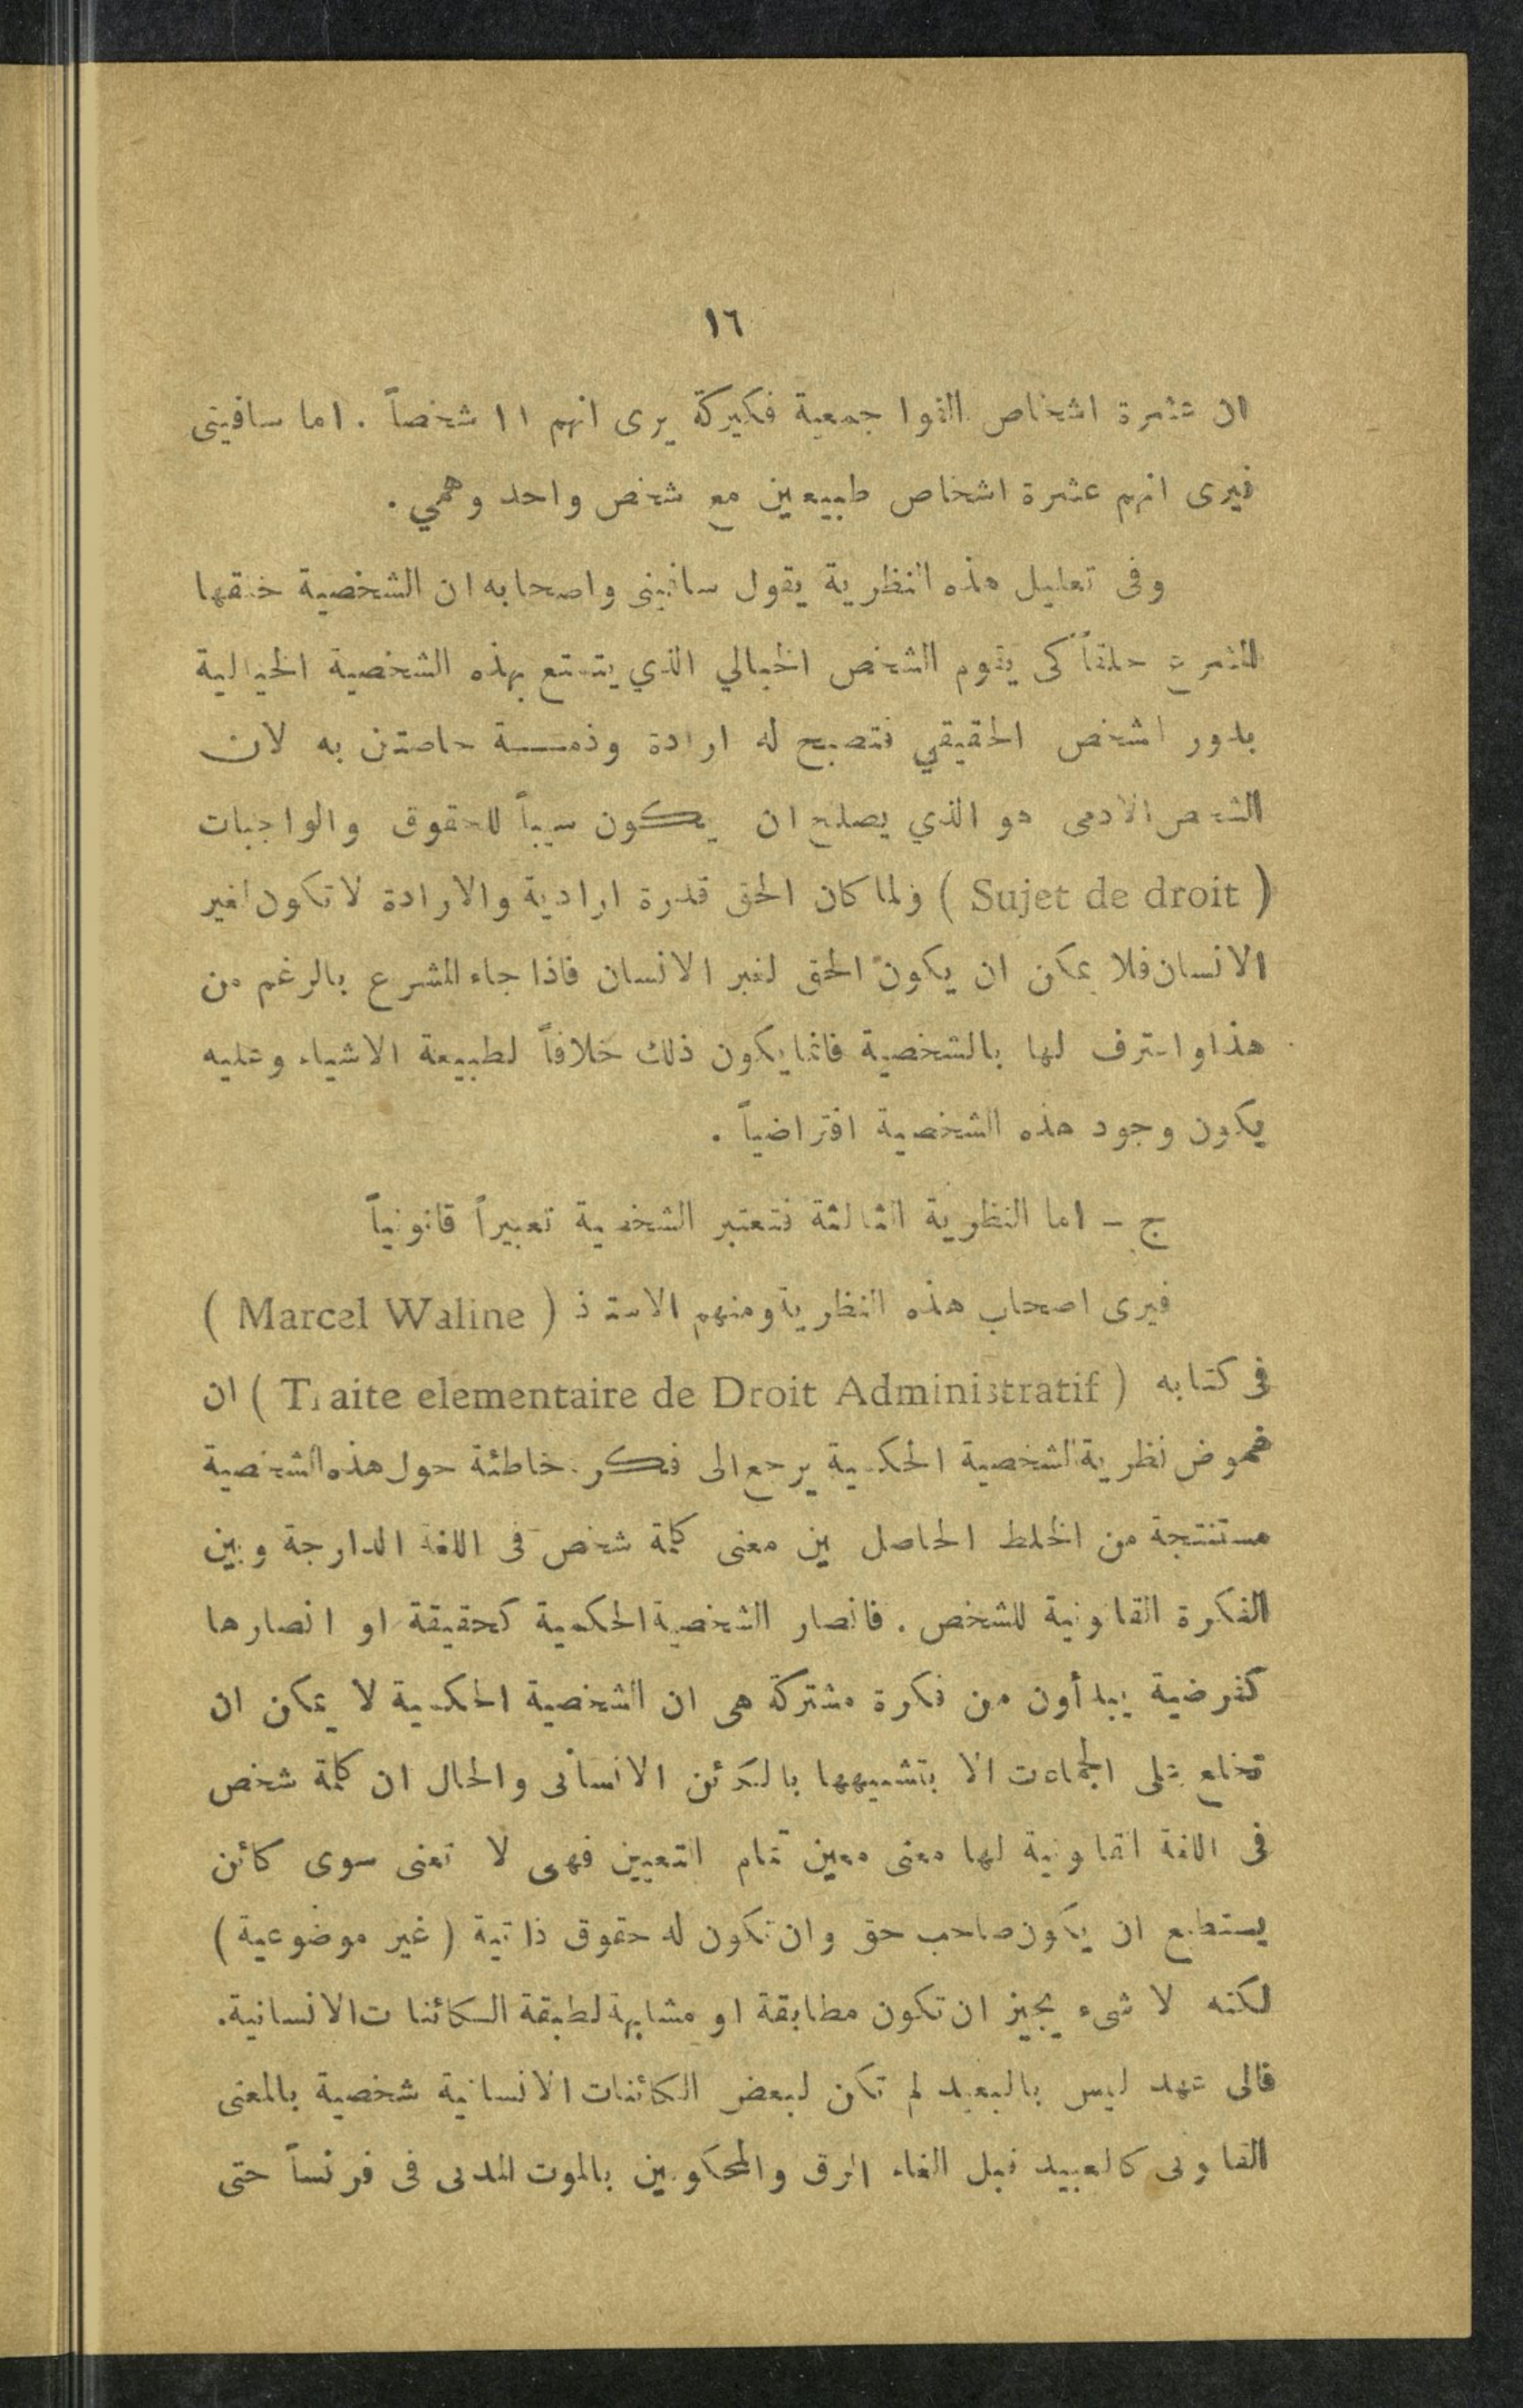 ١٦
ان عشرة اشخاص الفوا جمعية فكيركة يرى انهم ١١ شخصاً . اما سافينى
فيرى انهم عشرة اشخاص طبيعين مع شخص واحد وهمي .
وفى تعليل هذه النظرية يقول سافينى واصحابه ان الشخصية خلقها
المشرع خلقاً كى يقوم الشخص الخيالي الذي يتمتع بهذه الشخصية الخيالية
بدور الشخص الحقيقي فتصبح له ارادة وذمـــة خاصتان به لان
الشخص الادمى هو الذي يصلح ان يكون سبباً للحقوق والواجبات
( Sujet de droit ) ولما كان الحق قدرة ارادية والارادة لا تكون لغير
الانسان فلا يمكن ان يكون الحق لغير الانسان فاذا جاء المشرع بالرغم من
هذا واعترف لها بالشخصية فانما يكون ذلك خلافاً لطبيعة الاشياء وعليه
يكون وجود هذه الشخصية افتراضياً .
ج - اما النظرية الثالثة فتعتبر الشخصية تعبيراً قانونياً
فيرى اصحاب هذه النظرية ومنهم الاستاذ ( Marcel Waline )
فى كتابه ( Traite elementaire de Droit Administratif ) ان
غموض نظرية الشخصية الحكمية يرجع الى فكر خاطئة حول هذه الشخصية
مستنتجة من الخلط الحاصل بين معنى كلمة شخص فى اللغة الدارجة وبين
الفكرة القانونية للشخص . فانصار الشخصية الحكمية كحقيقة او انصارها
كفرضية يبدأون من فكرة مشتركة هى ان الشخصية الحكمية لا يمكن ان
تخلع على الجماعات الا بتشبيهها بالكائن الانسانى والحال ان كلمة شخص
فى اللغة القانونية لها معنى معين تمام التعيين فهى لا تعنى سوى كائن
يستطيع ان يكون صاحب حق وان تكون له حقوق ذاتية ( غير موضوعية )
لكنه لا شىء يجيز ان تكون مطابقة او مشابهة لطبقة الكائنات الانسانية .
فالى عهد ليس بالبعيد لم تكن لبعض الكائنات الانسانية شخصية بالمعنى
القانونى كالعبيد قبل الغاء الرق والمحكومين بالموت المدنى فى فرنسا حتى